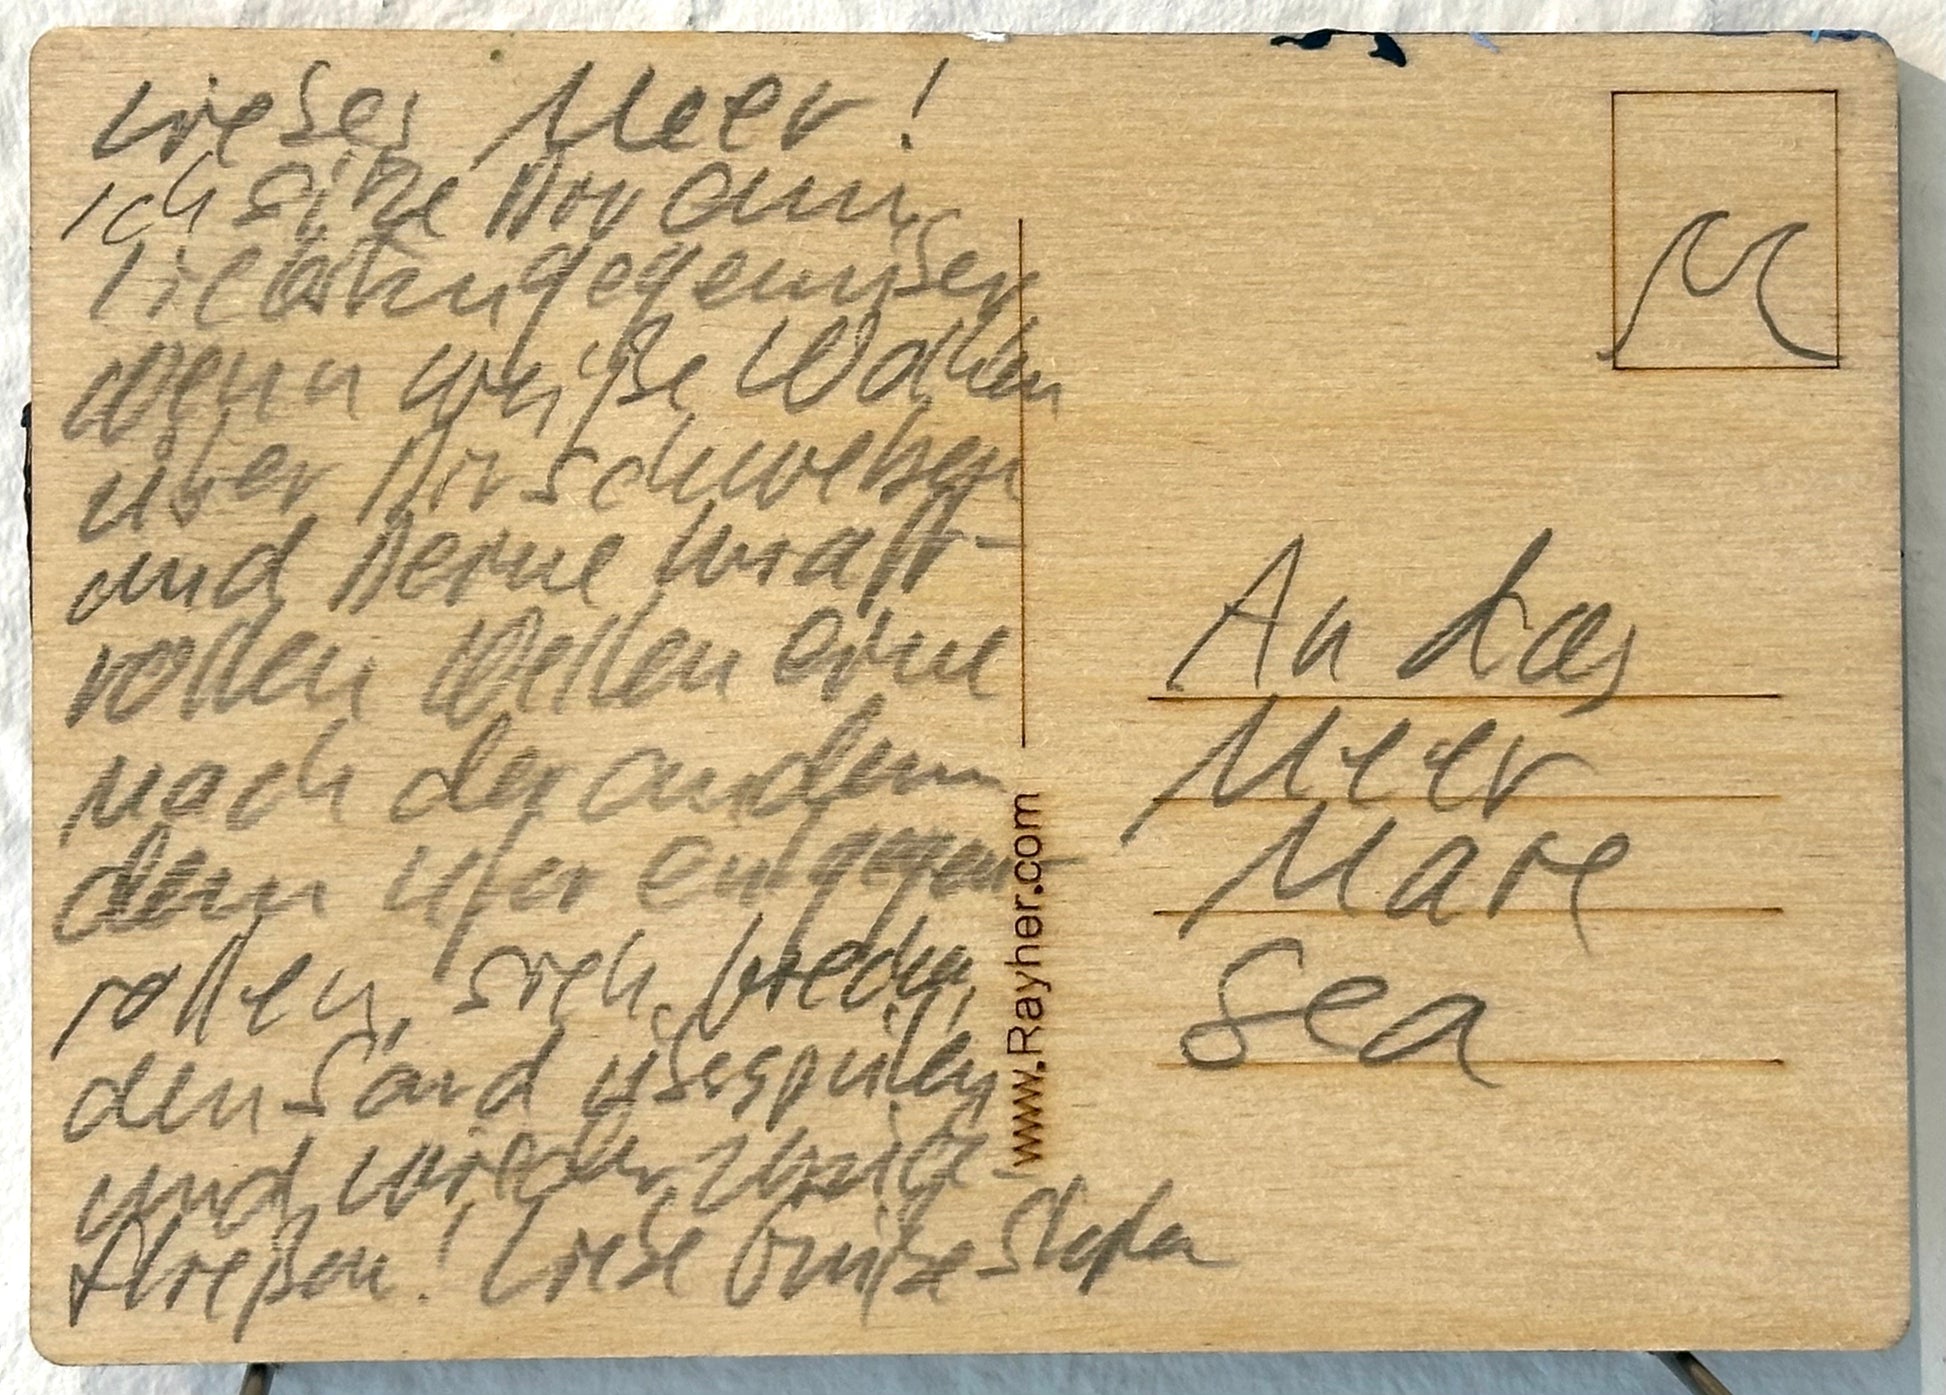 Liebes Meer!
Ich sitze Dir am
liebsten gegenüber
wenn weiße Wolken
über Dir schweben
und Deine kraft-
vollen Wellen eine
nach der andern
dem Ufer entgegen-
rollen, sich brechen,
den Sand überspülen
und wieder zurück-
fließen! Liebe Grüße Stefan
www.Rayher.com
An das
Meer
Mare
Sea